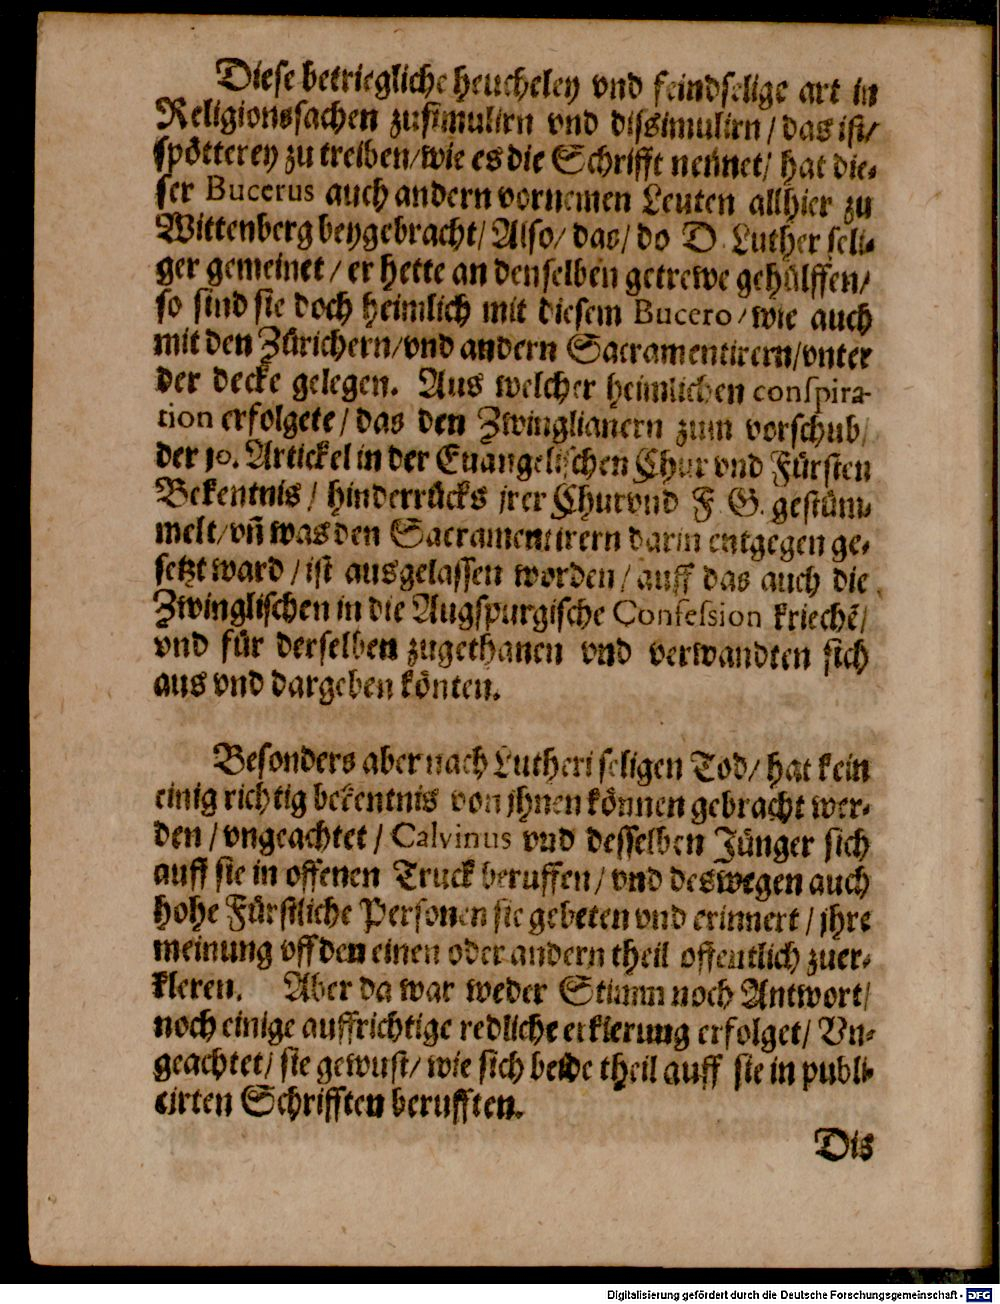 Diese betriegliche heucheley vnd feindselige art in
Religionssachen zusimulirn vnd dissimulirn / das ist/
spötterey zu treiben/wie es die Schrifft nennet/ hat die-
ser Bucerus auch andern vornemen Leuten allhier zu
Wittenberg beygebracht/ Also/ das/ do D. Luther seli-
ger gemeinet / er hette an denselben getrewe gehülffen/
so sind sie doch heimlich mit diesem Bucero /wie auch
mit den Zürichern/vnd andern Sacramentirern/vnter
der decke gelegen. Aus welcher heimlichen conspira-
tion erfolgete / das den Zwinglianern zum vorschub/
der 10. Artickel in der Euangelischen Chur vnd Fürsten
Bekentnis / hinderrücks jrer Chur vnd F. G. gestüm-
melt/vñ was den Sacramentirern darin entgegen ge-
setzt ward / ist ausgelassen worden / auff das auch die
Zwinglischen in die Augspurgische Confession kriechẽ/
vnd für derselben zugethanen vnd verwandten sich
aus vnd dargeben könten.
Besonders aber nach Lutheri seligen Tod/ hat kein
einig richtig bekentnis von jhnen können gebracht wer-
den / vngeachtet / Calvinus vnd desselben Jünger sich
auff sie in offenen Truck beruffen / vnd deswegen auch
hohe Fürstliche Personen sie gebeten vnd erinnert / jhre
meinung vff den einen oder andern theil offentlich zuer-
kleren. Aber da war weder Stimm noch Antwort/
noch einige auffrichtige redliche erklerung erfolget/ Vn-
geachtet/ sie gewust/ wie sich beide theil auff sie in publi-
cirten Schrifften berufften.
Dis
Digitalisierung gefördert durch die Deutsche Forschungsgemeinschaft - DFG